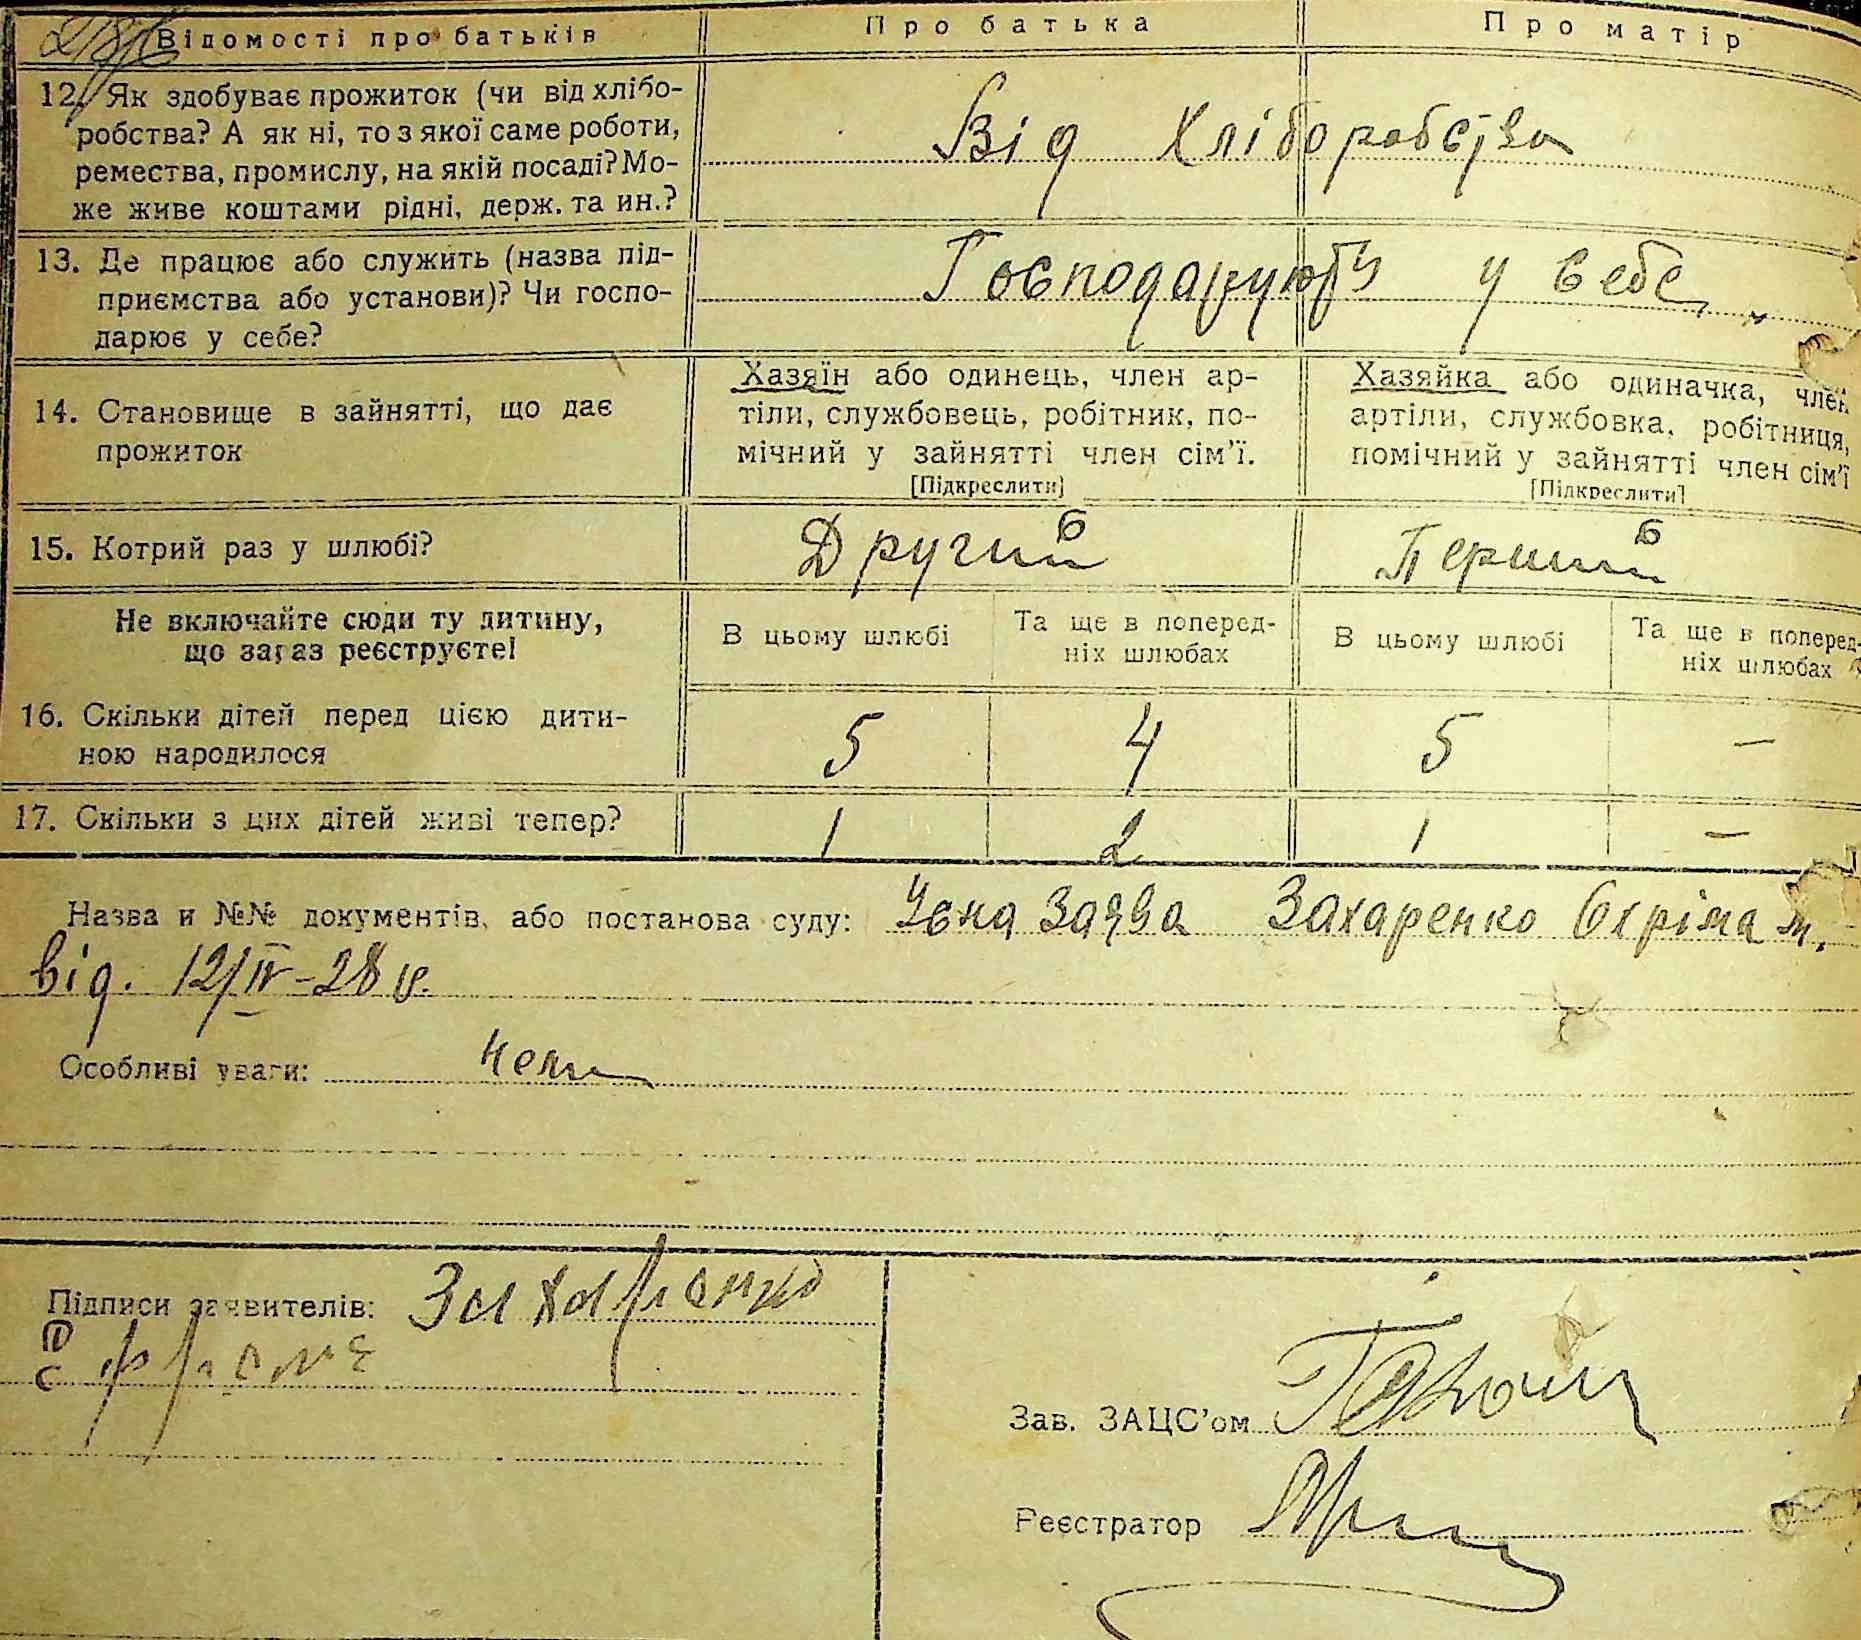 Відомості про батьків Про батька Про матір
12. Як здобуває прожиток (чи від хлібо-
робства? А як ні, то з якої саме роботи,
ремества, промислу, на якій посаді? Мо-
же живе коштами рідні, держ. та ин.?
Від Хліборобства
13. Де працює або служить (назва під-
приємства або установи)? Чи госпо-
дарює у себе?
Господарюють у себе
14. Становище в зайнятті, що дає
прожиток
Хазяїн або одинець, член ар-
тіли, службовець, робітник, по-
мічний у зайнятті член сім'ї.
[Підкреслити]
Хазяйка або одиначка, член
артіли, службовка, робітниця,
помічний у зайнятті член сім'ї
[Підкреслити]
15. Котрий раз у шлюбі? Другий Перший
Не включайте сюди ту дитину,
що зараз реєструєте!
В цьому шлюбі
Та ще в поперед-
ніх шлюбах
В цьому шлюбі
Та ще в поперед-
ніх шлюбах
16. Скільки дітей перед цією дити-
ною народилося
5 4 5 —
17. Скільки з цих дітей живі тепер? 1 2 1 —
Назва и №№ документів, або постанова суду: Усна Заява Захаренко Охріма м.
від. 12/IV-28 р.
Особливі уваги: нема
Підписи заявителів: Захаренко
Зав. ЗАЦС'ом
Реєстратор